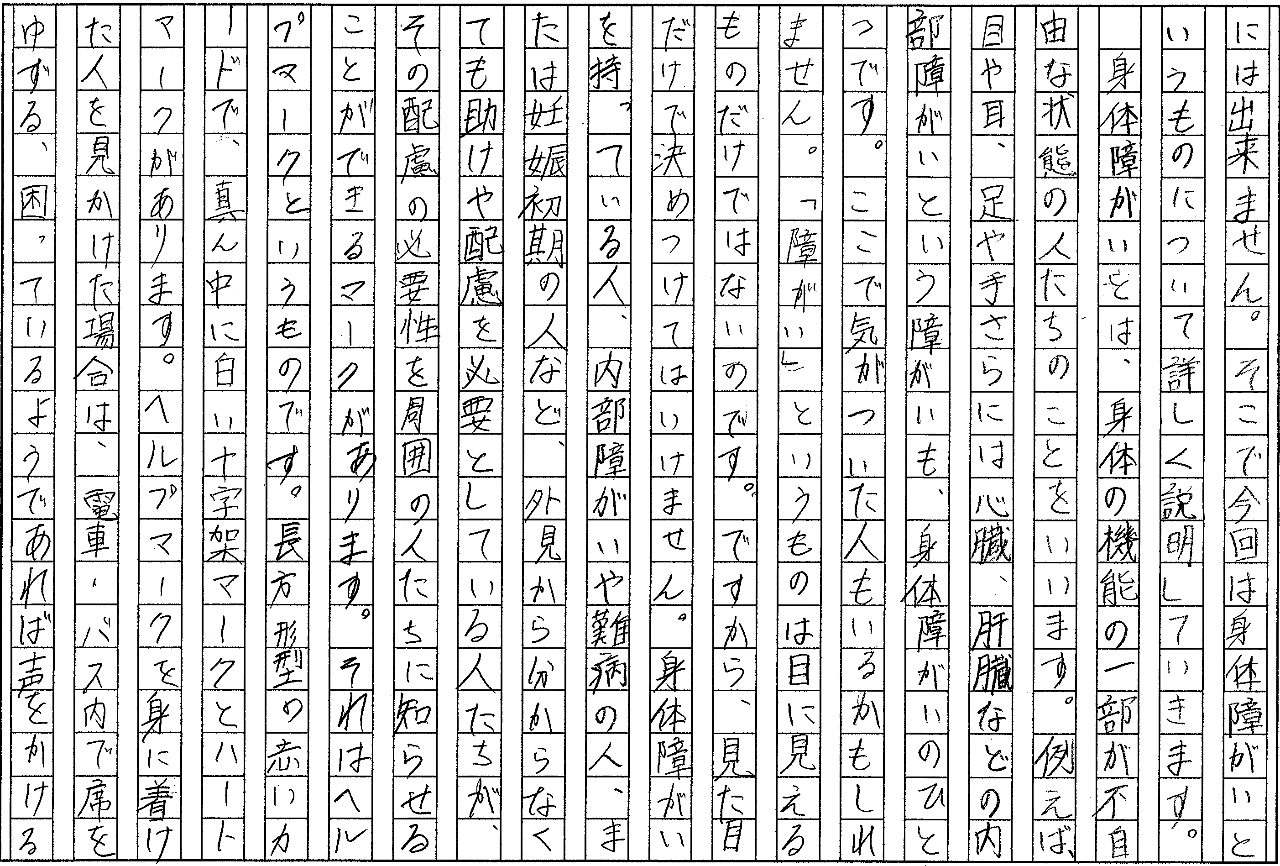 には出来ません。そこで今回は身体障がいと
いうものについて詳しく説明していきます。
身体障がいとは、身体の機能の一部が不自
由な状態の人たちのことをいいます。例えば、
目や耳、足や手さらには心臓、肝臓などの内
部障がいという障がいも、身体障がいのひと
つです。ここで気がついた人もいるかもしれ
ません。「障がい」というものは目に見える
ものだけではないのです。ですから、見た目
だけで決めつけてはいけません。身体障がい
を持っている人、内部障がいや難病の人、ま
たは妊娠初期の人など、外見から分からなく
ても助けや配慮を必要としている人たちが、
その配慮の必要性を周囲の人たちに知らせる
ことができるマークがあります。それはヘル
プマークというものです。長方形型の赤いカ
ードで、真ん中に白い十字架マークとハート
マークがあります。ヘルプマークを身に着け
た人を見かけた場合は、電車・バス内で席を
ゆずる、困っているようであれば声をかける